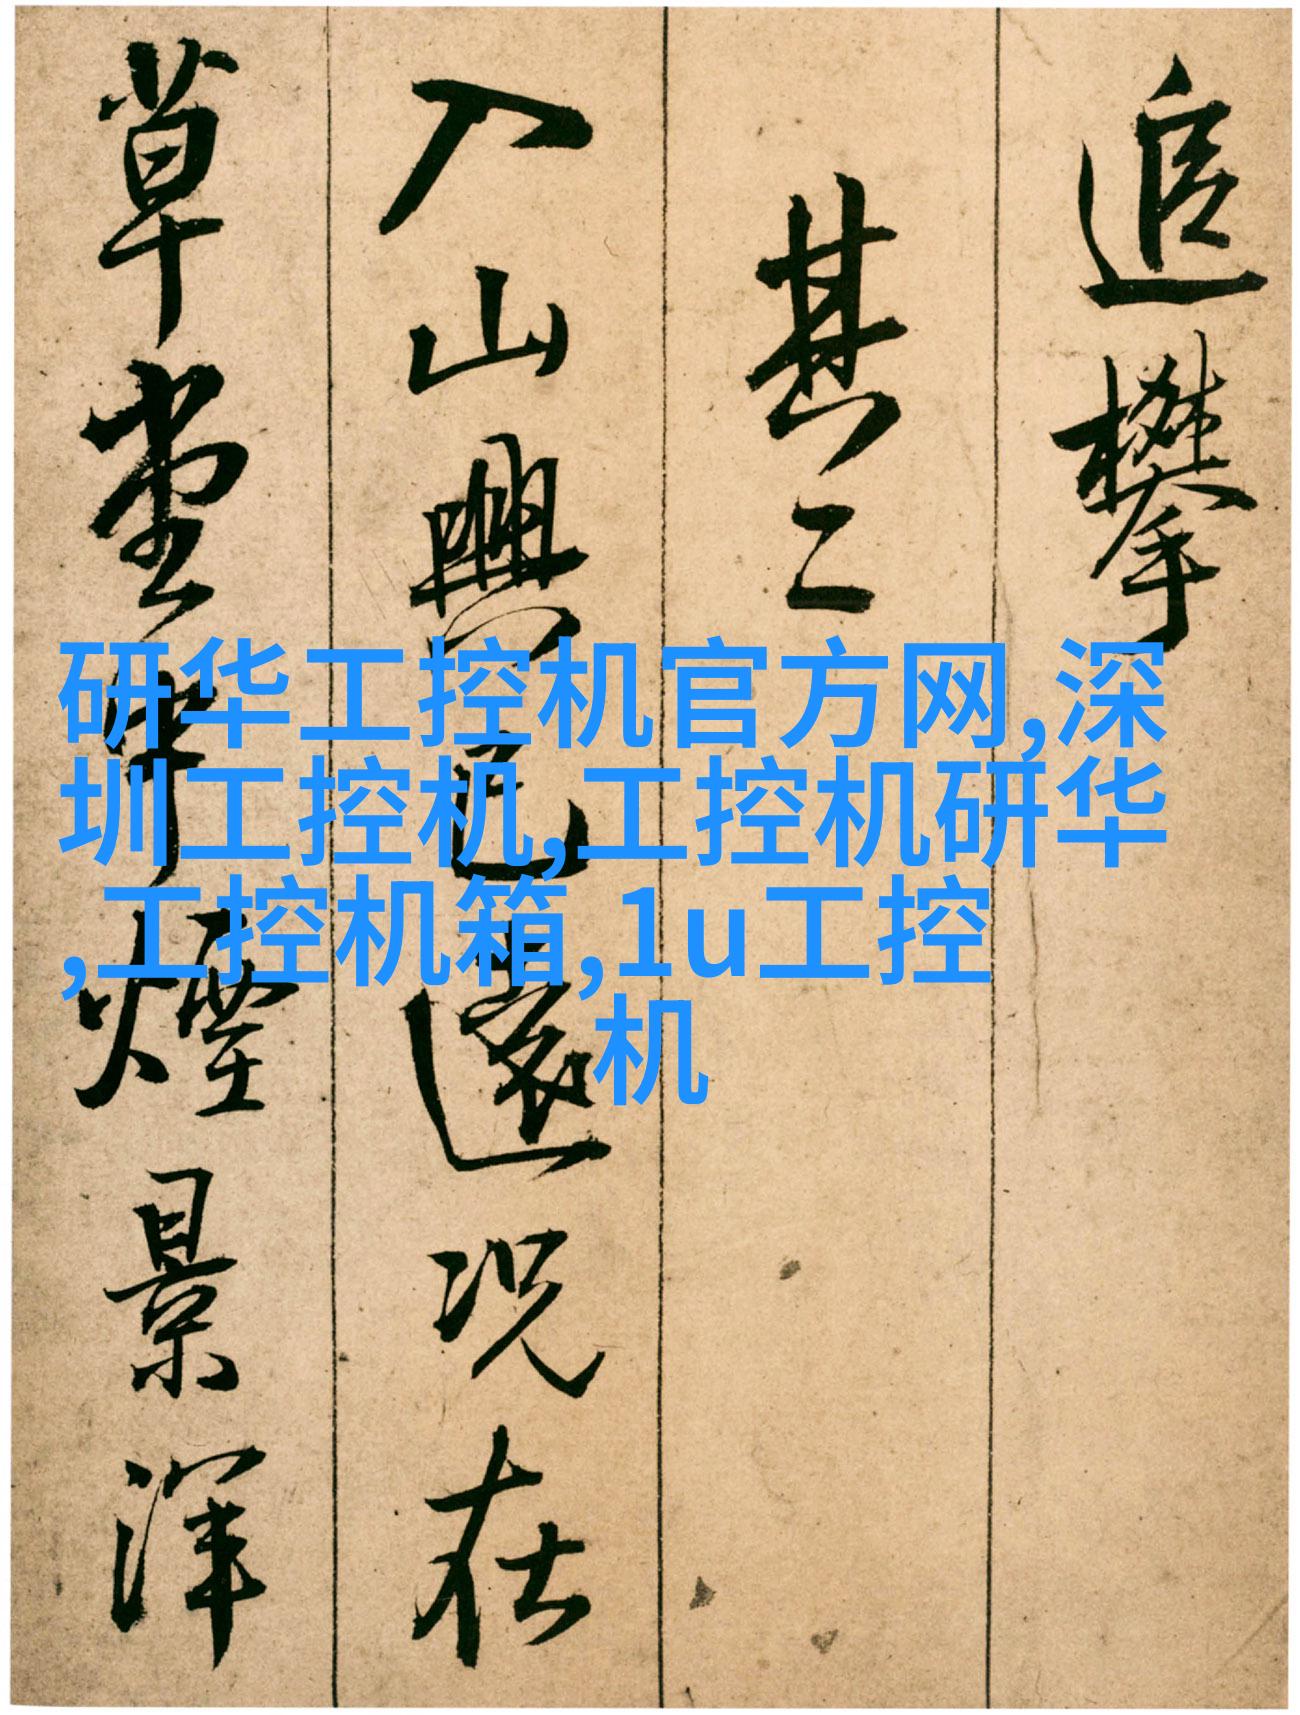 追攀
其二
入山興已遠况在
草堂中煙景渾
研华工控机官方网,深
圳工控机,工控机研华
,工控机箱,1u工控
机